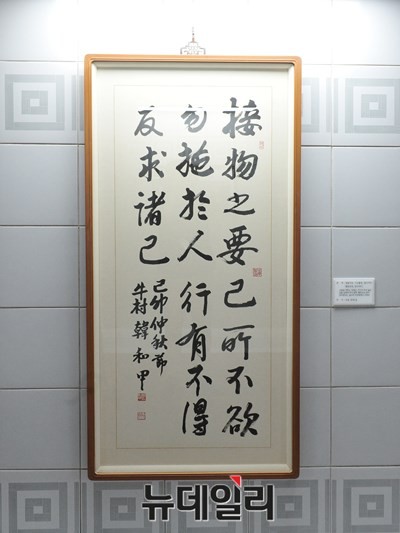 接物之要己所不欲
勿施於人行有不得
反求諸己
己卯仲秋節
牛村韓和甲
뉴데일리